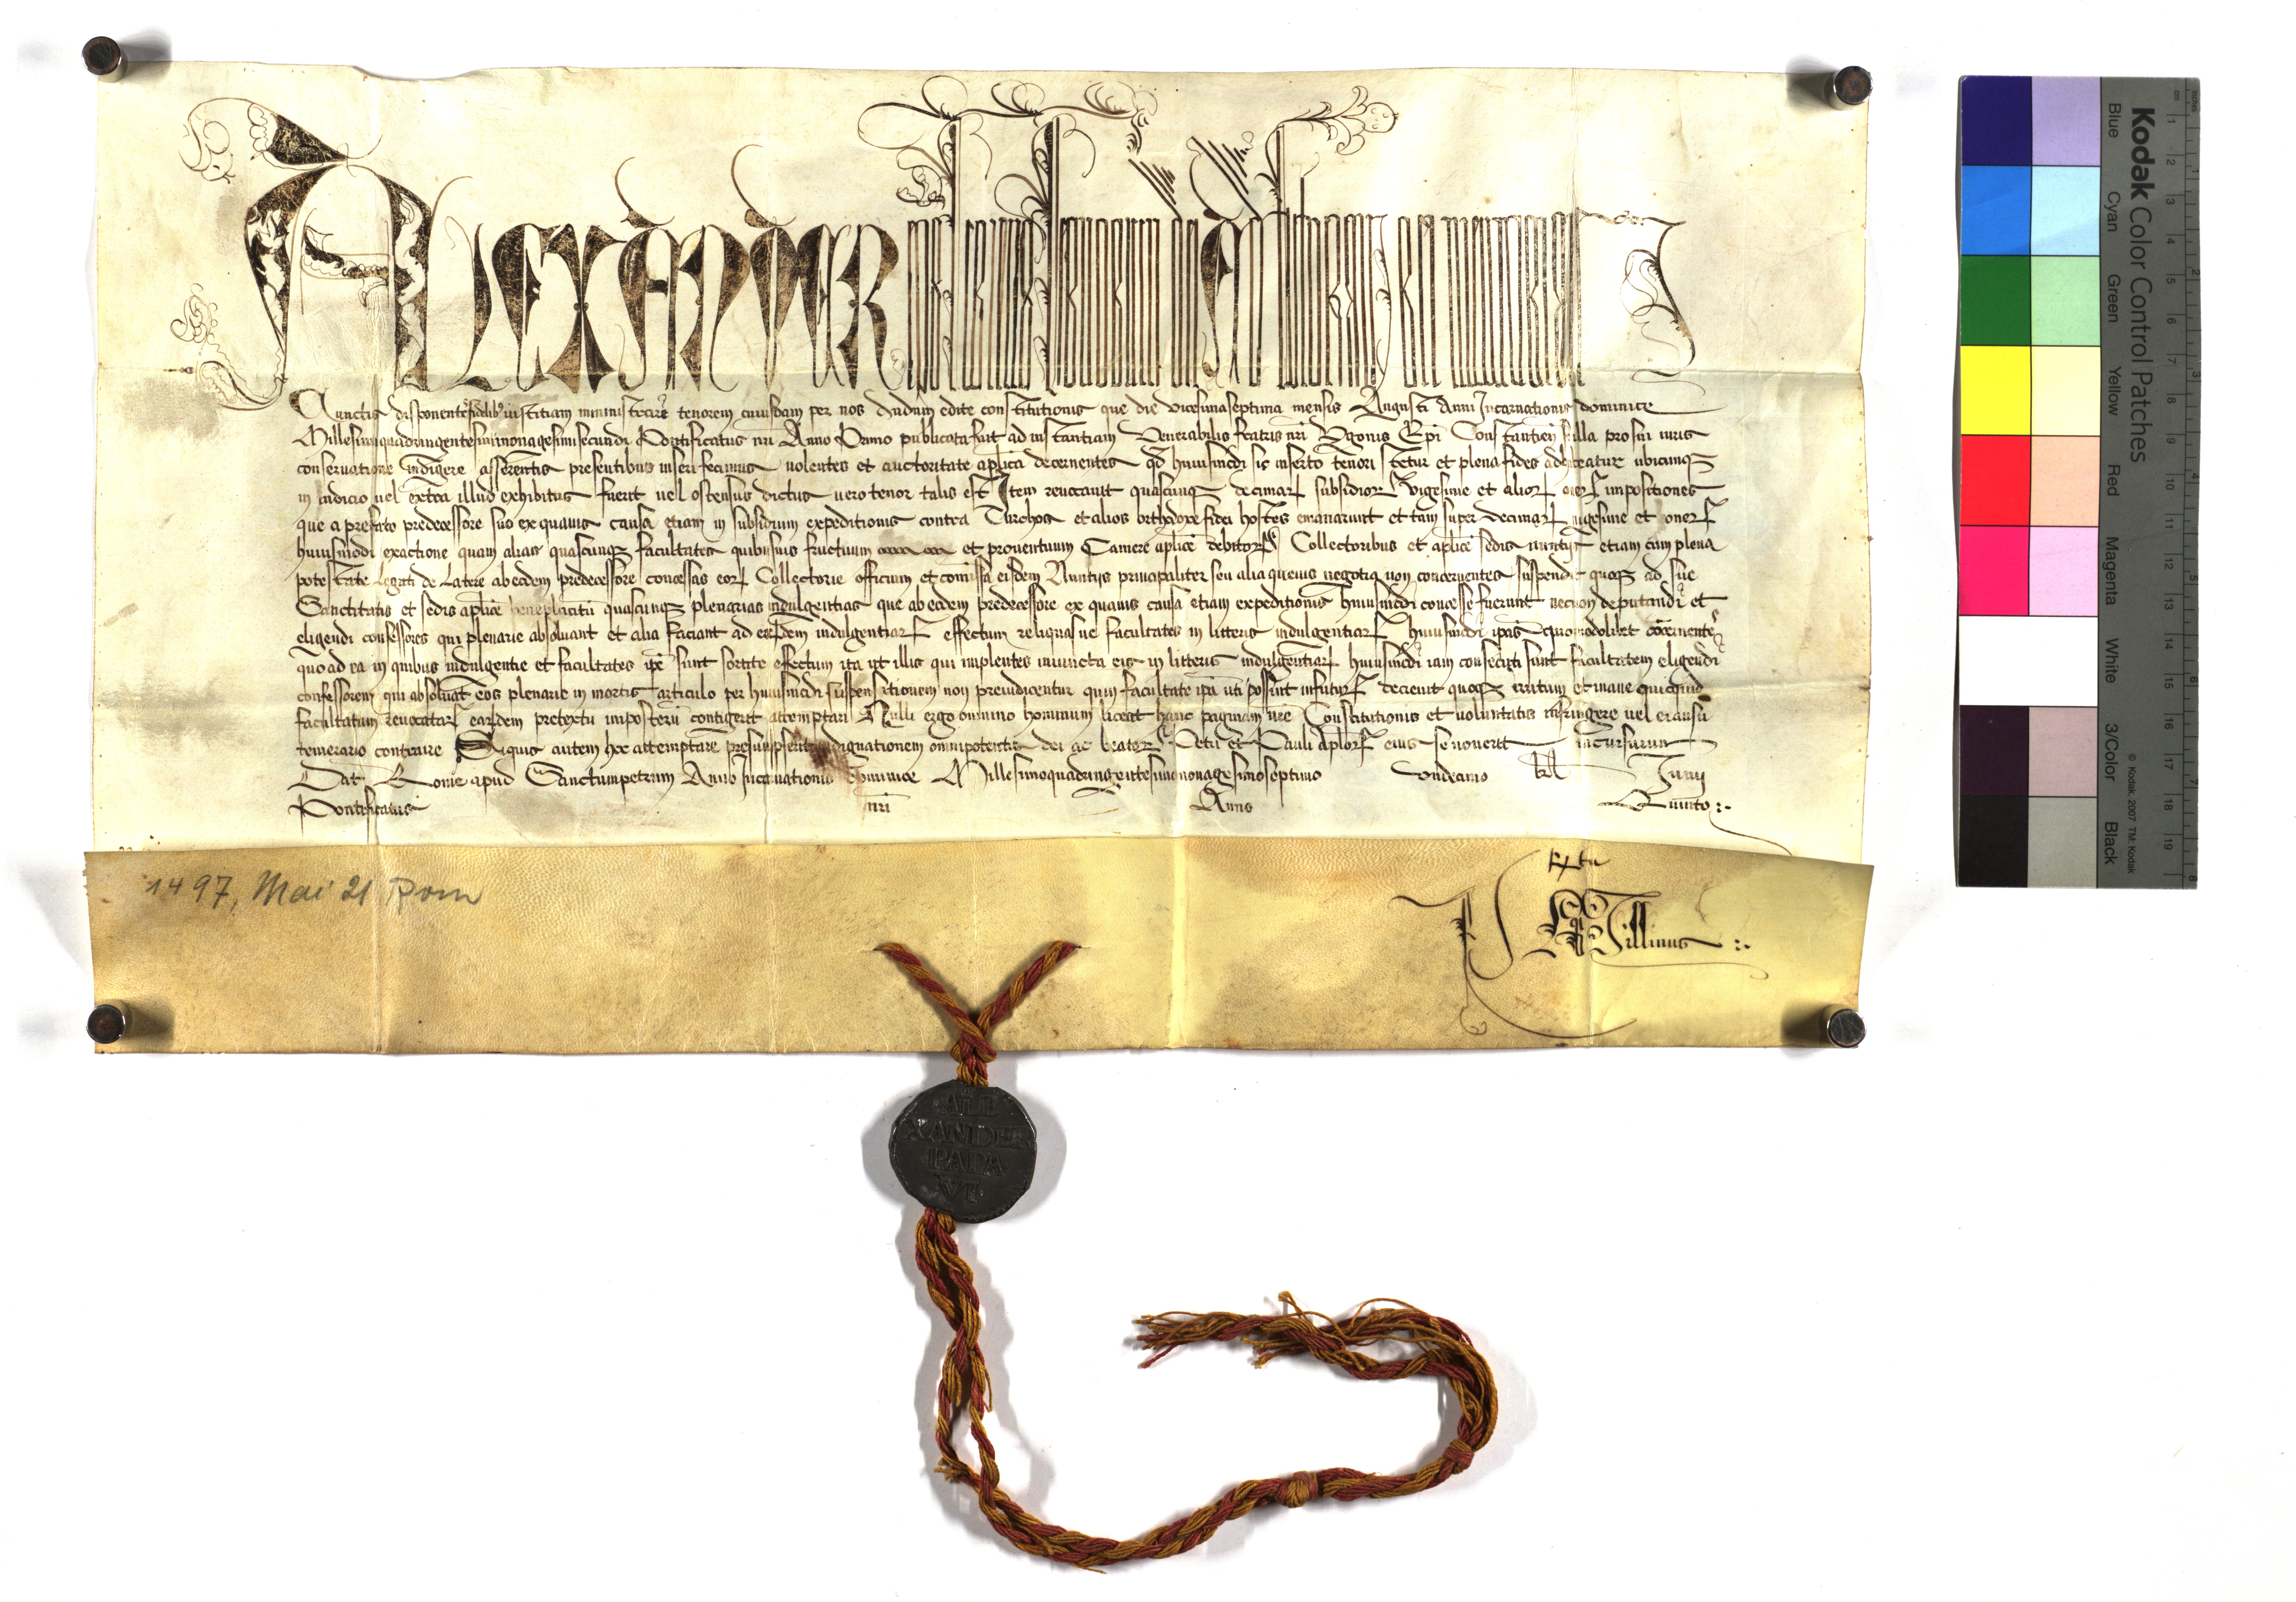 ALEXANDER eps seruus seruorum dei Ad futuram rei memoriam
Cunctis disponentē fidelibꝰ iustitiam ministrare tenorem cuiusdam per nos dudum edite constitutionis que die vicesimaseptima mensis Augusti Anni Incarnationis dominice
Millesimiquadringentesiminonagesimisecundi Pontificatus nri Anno Primo publicata fuit ad instantiam Venerabilis fratris nri Vgonis Epi Constantien illa pro sui iuris
conseruatione indigere asserentis presentibus inseri fecimus uolentes et auctoritate aplica decernentes qd huiusmodi sic inserto tenori stetur et plena fides adhibeatur ubicunqꝫ
in iudicio uel extra illud exhibitus fuerit uel ostensus dictus uero tenor talis est Item reuocauit quascunqꝫ decimarꝝ subsidiorꝝ vigesime et aliorꝝ onerꝝ impositiones
que a prefato predecessore suo ex quauis causa etiam in subsidium expeditionis contra Turchos et alios orthodoxe fidei hostes emanarunt et tam super decimarꝝ uigesime et onerꝝ
huiusmodi exactione quam alias quascunqꝫ facultates quibusuis fructuum et prouentuum Camere aplice debitorꝝ Collectoribus et aplice sedis nuntijs etiam cum plena
potestate Legati de Latere ab eodem predecessore concessas eorꝝ Collectorie officium et comissa eisdem Nuntijs principaliter seu alia queuis negotia non concernentes suspendit quoqꝫ ad sue
Sanctitatis et sedis aplice beneplacitū quascunqꝫ plenarias indulgentias que ab eodem predecessore ex quauis causa etiam expeditionis huiusmodi concesse fuerunt necnon deputandi et
eligendi confessores qui plenarie absoluant et alia faciant ad earūdem indulgentiarꝝ effectum reliquasue facultates in litteris indulgentiarꝝ huiusmodi ipas quomodolibet concernentes
quo ad ea in quibus indulgentie et facultates ipe sunt sortite effectum ita ut illis qui implentes iniuncta eis in litteris indulgentiarꝝ huiusmodi iam consecuti sunt facultatem eligendi
confessorem qui absoluat eos plenarie in mortis articulo per huiusmodi suspensionem non preiudicentur quin facultate ipa uti possint infuturꝝ decreuit quoqꝫ irritum et inane quicquid
facultatum reuocatarꝝ earūdem pretextu imposterū contigerit attemptari Nulli ergo omnino hominum liceat hanc paginam nre Constitutionis et uoluntatis infringere uel ei ausu
temerario contraire Siquis autem hoc attemptare presumpserit indignationem omnipotentis dei ac beatorꝝ Petri et Pauli aplorꝝ eius se nouerit incursurum
Dat Rome apud Sanctumpetrum Anno Incarnationis dominice Millesimoquadringentesimononagesimoseptimo vndecimo kl Iunij
Pontificatus nri Anno Quinto :.
1497, Mai 21 Rom
ALE
XANDER
PAPA
VI
Kodak Color Control Patches
Blue Cyan Green Yellow Red Magenta White 3/Color Black
© Kodak, 2007 TM: Kodak
cm 1 2 3 4 5 6 7 8 9 10 11 12 13 14 15 16 17 18 19
inches 1 2 3 4 5 6 7 8